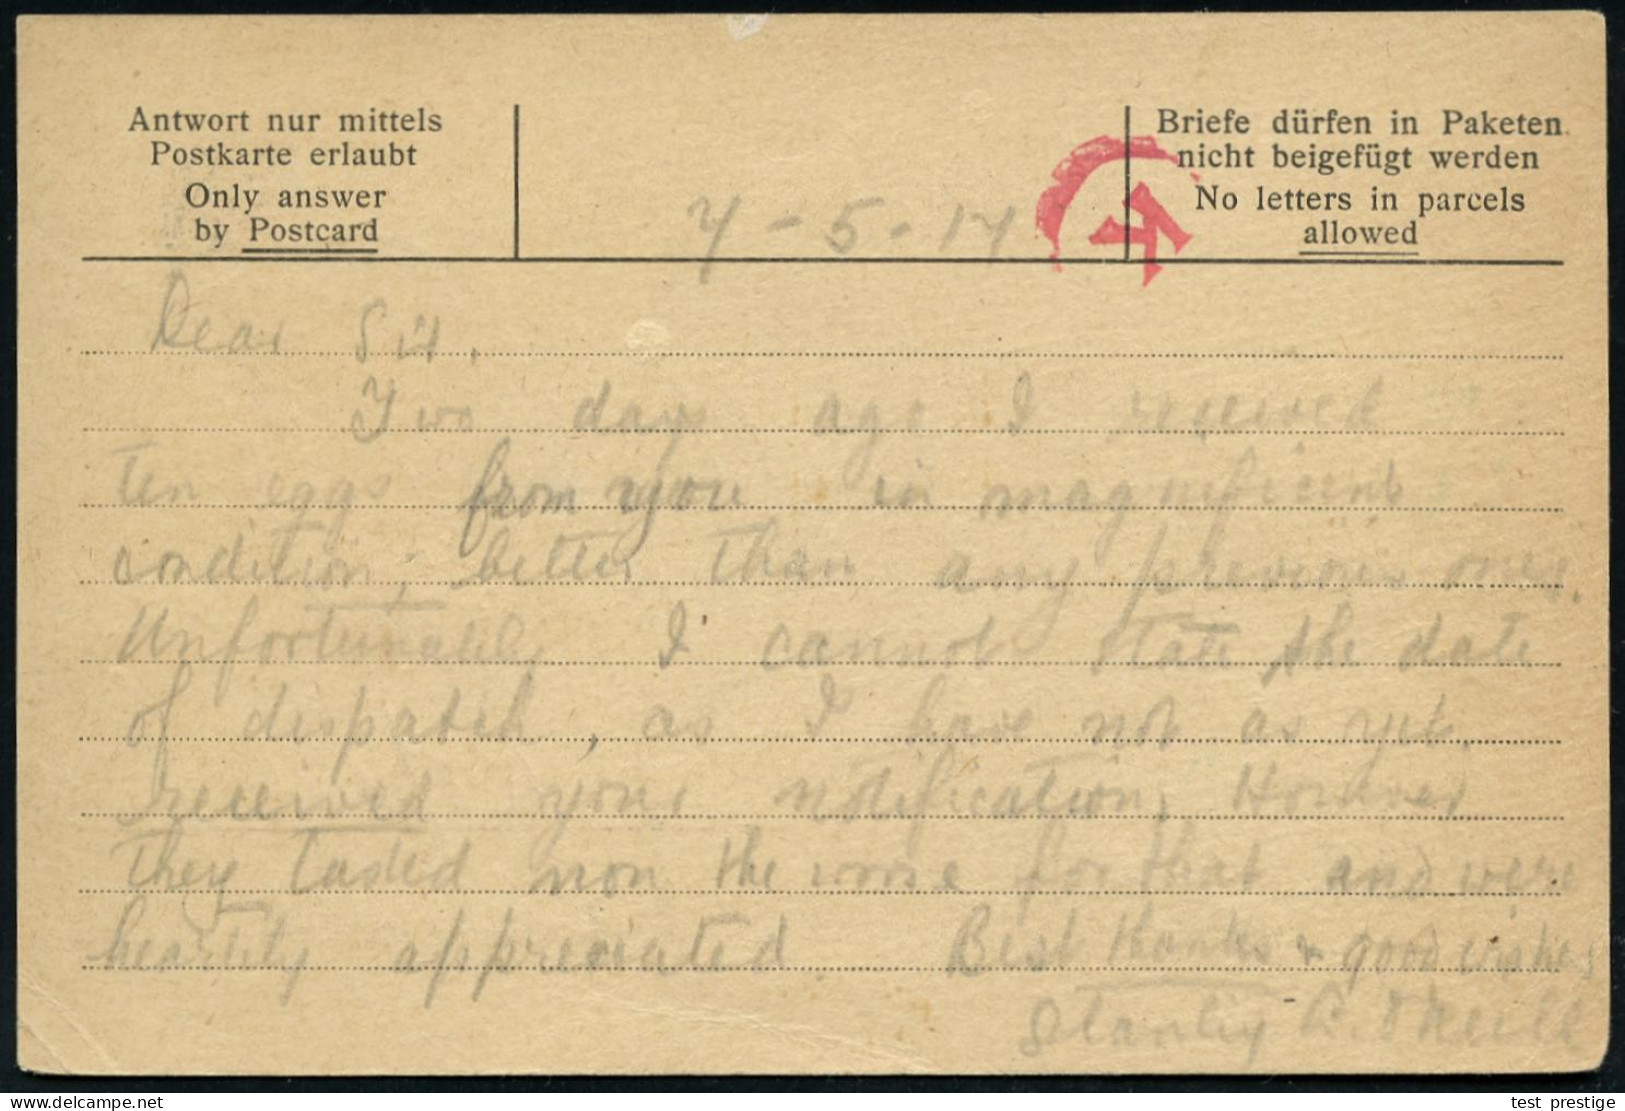 Antwort nur mittels
Postkarte erlaubt
Only answer
by Postcard
Briefe dürfen in Paketen
nicht beigefügt werden
No letters in parcels
allowed
K
Dear Sir,
Two days ago I received
ten eggs from you in magnificent
condition; better than any previous ones.
Unfortunately I cannot state the date
of dispatch, as I have not as yet
received your notification, However
they tasted non the worse for that and were
heartily appreciated. Best thanks & good wishes
Stanley O'Neill
test prestige